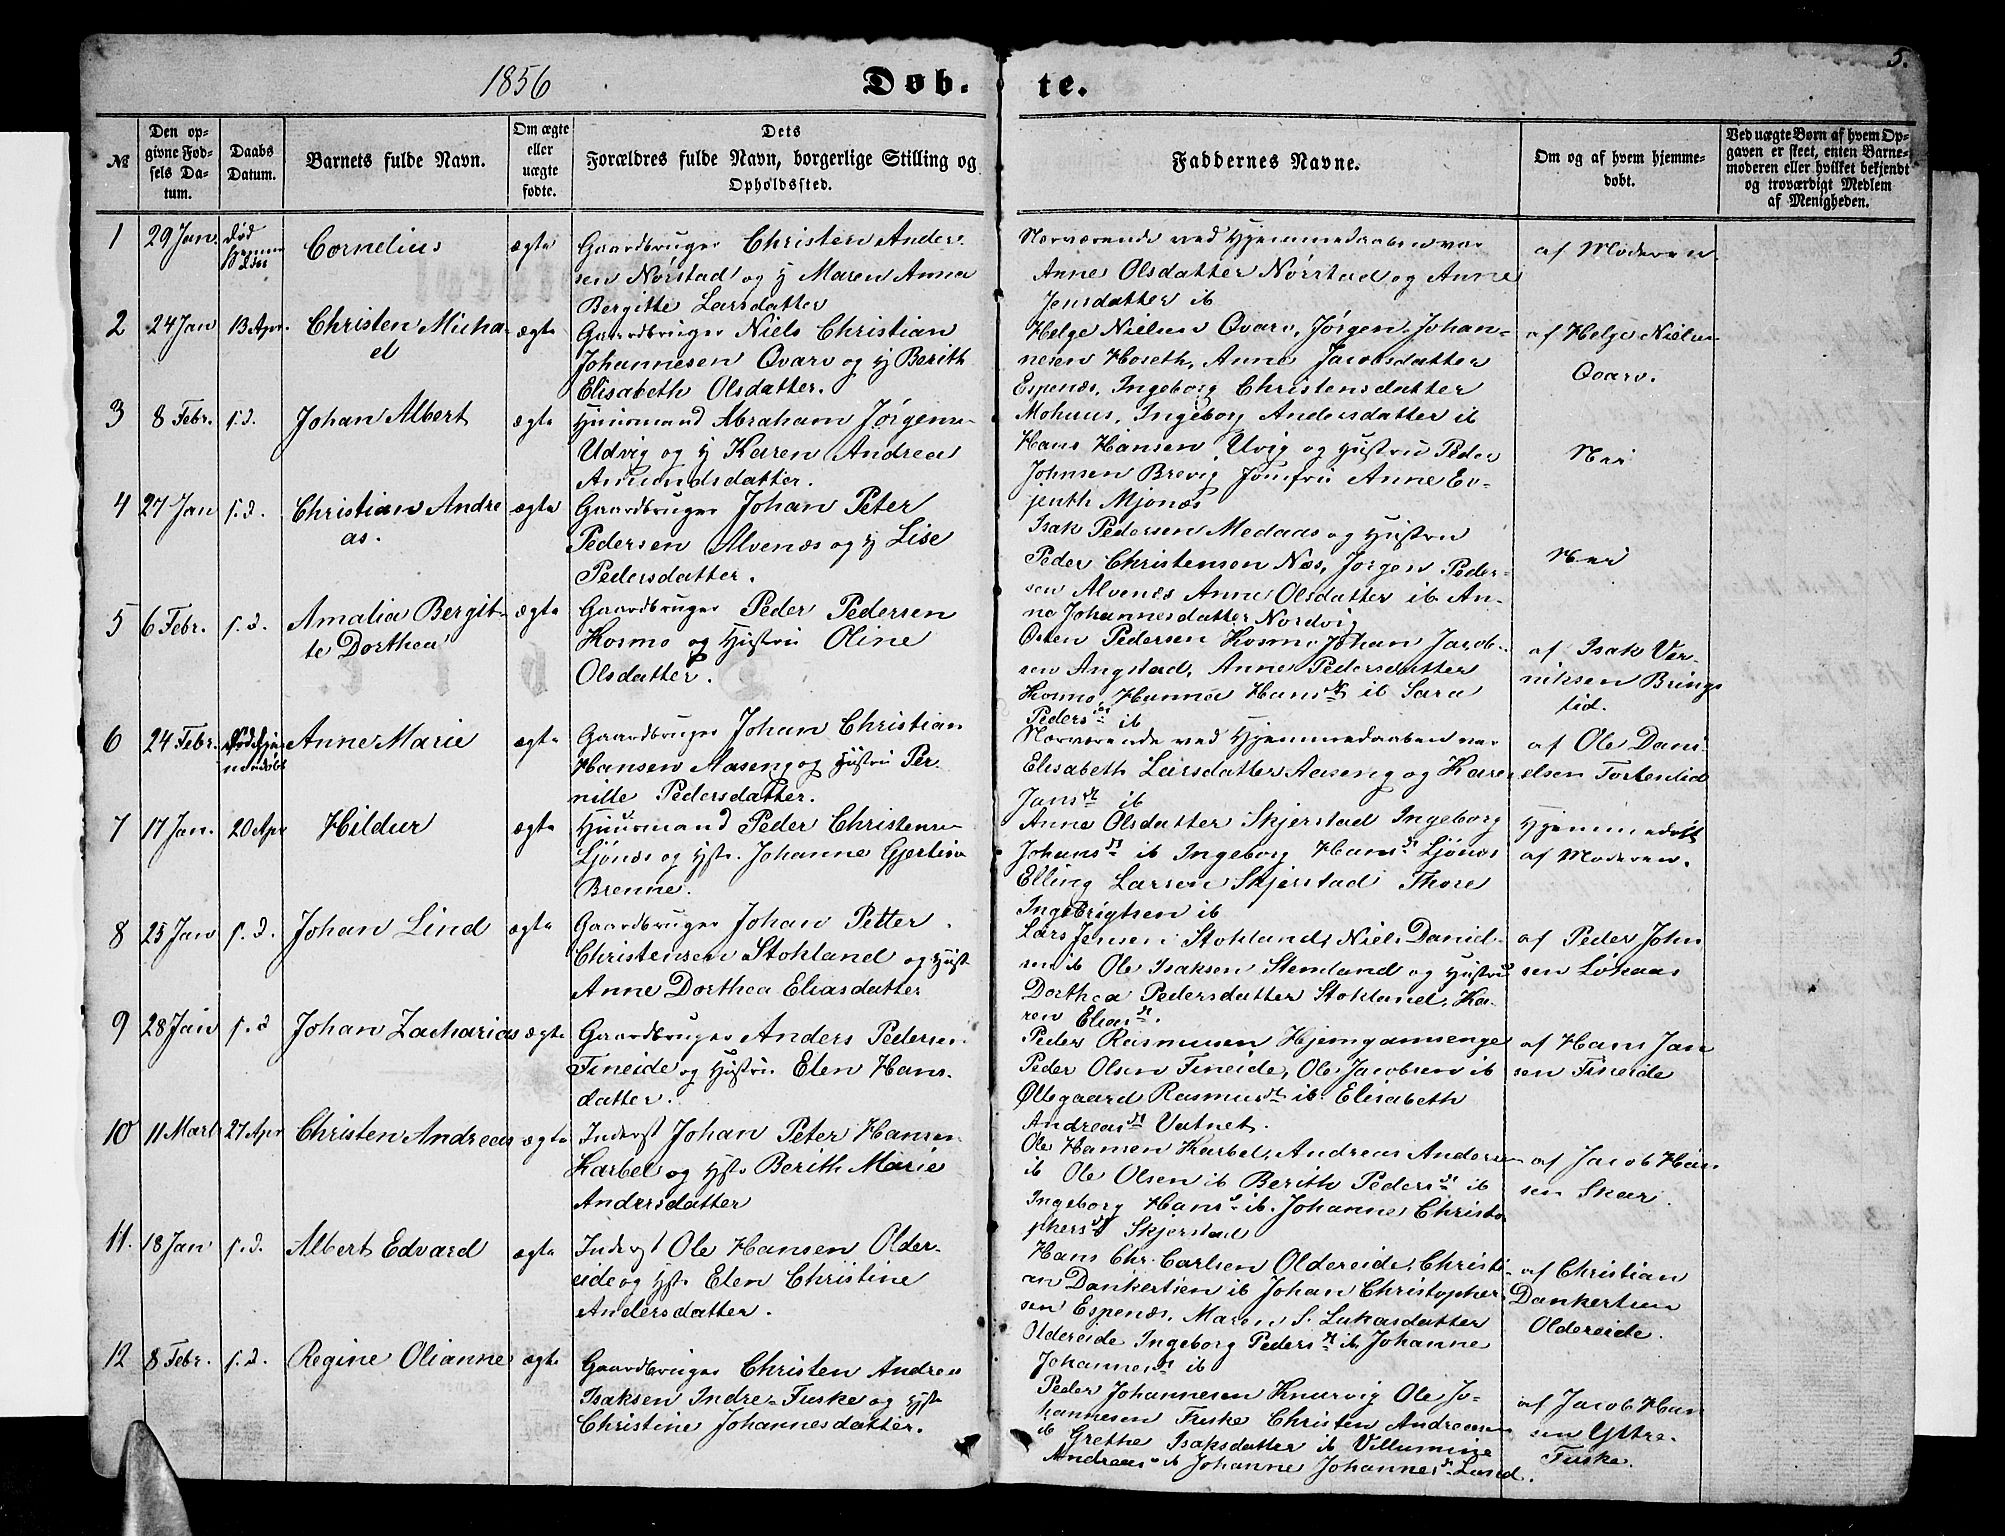 1856
Døb-
te.
5.
№
Den op-
givne Fød-
sels Da-
tum.
Daabs
Datum.
Barnets fulde Navn.
Om ægte
eller
uægte
fødte.
Dets
Forældres fulde Navn, borgerlige Stilling og
Opholdssted.
Faddernes Navne.
Om og af hvem hjemme-
døbt.
Ved uægte Børn af hvem Op-
gaven er skeet, enten Barne-
moderen eller hvilket bekjendt
og troværdigt Medlem
af Menigheden.
1
29 Jan.
død
Cornelius
ægte
Gaardbruger Christen Ander-
sen Nørstad og H Maren Anna
Bergitte Larsdatter
Nærværende ved Hjemmedaaben var
Anne Olsdatter Nørstad og Anne
Jensdatter ib
af Moderen
2
24 Jan
13 Apr.
Christen Micha-
el
ægte
Gaardbruger Niels Christian
Johannesen Qvarv og H Berith
Elisabeth Olsdatter.
Helge Nielsen Qvarv, Jørgen Johan-
nesen Hoseth, Anne Jacobsdatter
Espenæs, Ingeborg Christensdatter
Mohuus, Ingeborg Andersdatter ib
af Helge Nielsen
Qvarv.
3
8 Febr.
s.d.
Johan Albert
ægte
Huusmand Abraham Jørgens.
Udvig og H Karen Andrea
Amundsdatter.
Hans Hansen Uvig og Hustru Peder
Johnsen Brevig Jomfru Anne Ev-
jenth Mjønæs
Nei
4
27 Jan
s.d.
Christian Andre
as.
ægte
Gaardbruger Johan Peter
Pedersen Alvenæs og H Lise
Pedersdatter.
Isak Pedersen Medaas og Hustru
Peder Christensen Næs, Jørgen Peder-
sen Alvenæs Anne Olsdatter ib An-
ne Johannesdatter Nordvig
Nei
5
6 Febr.
s.d.
Amalia Bergit-
te Dorthea
ægte
Gaardbruger Peder Pedersen
Kosmo og Hustru Oline
Olsdatter.
Osten Pedersen Kosmo, Johan Jacob-
sen Angstad, Anne Pedersdatter
Kosmo, Hanna Hansdt ib Sara
Pedersdt ib
af Isak Ver-
niksen Brings
lid.
6
24 Febr.
Anne Marie
ægte
Gaardbruger Johan Christian
Hansen Aaseng og Hustru Per
nille Pedersdatter.
Nærværende ved Hjemmedaaben var
Elisabeth Larsdatter Aaseng og Karen
Jansdt ib
af Ole Dani-
elsen Tortenlid
7
17 Jan.
20 Apr
Hildur
ægte
Huusmand Peder Christens.
Ljønes og Hstr. Johanne Gjertine
Brenne.
Anne Olsdatter Skjerstad Ingeborg
Johansdt ib Ingeborg Hansdt Ljønes
Elling Larsen Skjerstad Thore
Ingebrigtsen ib
Hjemmedøbt
af Moderen.
8
25 Jan
s.d.
Johan Lind
ægte
Gaardbruger Johan Petter
Christensen Stokland og Hust
Anne Dorthea Eliasdatter
Lars Jensen Stokland, Niels Daniel-
sen ib Ole Isaksen Stemland og Hustru
Dorthea Pedersdatter Stokland, Ka-
ren Eliasdt.
af Peder John
sen Løkaas
9
28 Jan
s.d
Johan Zacharias
ægte
Gaardbruger Anders Pedersen
Fineide og Hustru Elen Hans-
datter.
Peder Rasmusen Hjemgamsenge
Peder Olsen Fineide, Ole Jacobsen ib
Øllegaard Rasmusdt ib Elisabeth
Andreasdt Vatnet.
af Hans Jan
sen Fineide
10
11 Marts
27 Apr
Christen Andreas
ægte
Inderst Johan Peter Hansen
Karbel og Hst Berith Marie
Andersdatter
Ole Hansen Karbel, Andreas Andersen
ib Ole Olsen ib Berith Pedersdt ib
Ingeborg Hansdt ib. Johanne Christo
phersdt Skjerstad
af Jacob Han
sen Skar.
11.
18 Jan
s.d.
Albert Edvard
ægte
Inderst Ole Hansen Older-
eide og Hst Elen Christine
Andersdatter.
Hans Chr. Carlsen Oldereide, Christi-
an Dankertsen ib Johan Christopher-
sen Espenæs, Maren S. Lukasdatter
Oldereide Ingeborg Pedersdt ib Johanne
Johannesdt ib
af Christian
Dankertsen
Oldereide.
12
8 Febr.
s.d.
Regine Olianne
ægte
Gaardbruger Christen Andreas
Isaksen Indre-Fuske og Hst
Christine Johannesdatter.
Peder Johannesen Knurvig Ole Jo-
hannesen Fuske Christen Andreasen
ib Grethe Isaksdatter ib Villumine
Andreas ib Johanne Johannesdt Lund.
af Jacob Han
sen Yttre-
Fuske.